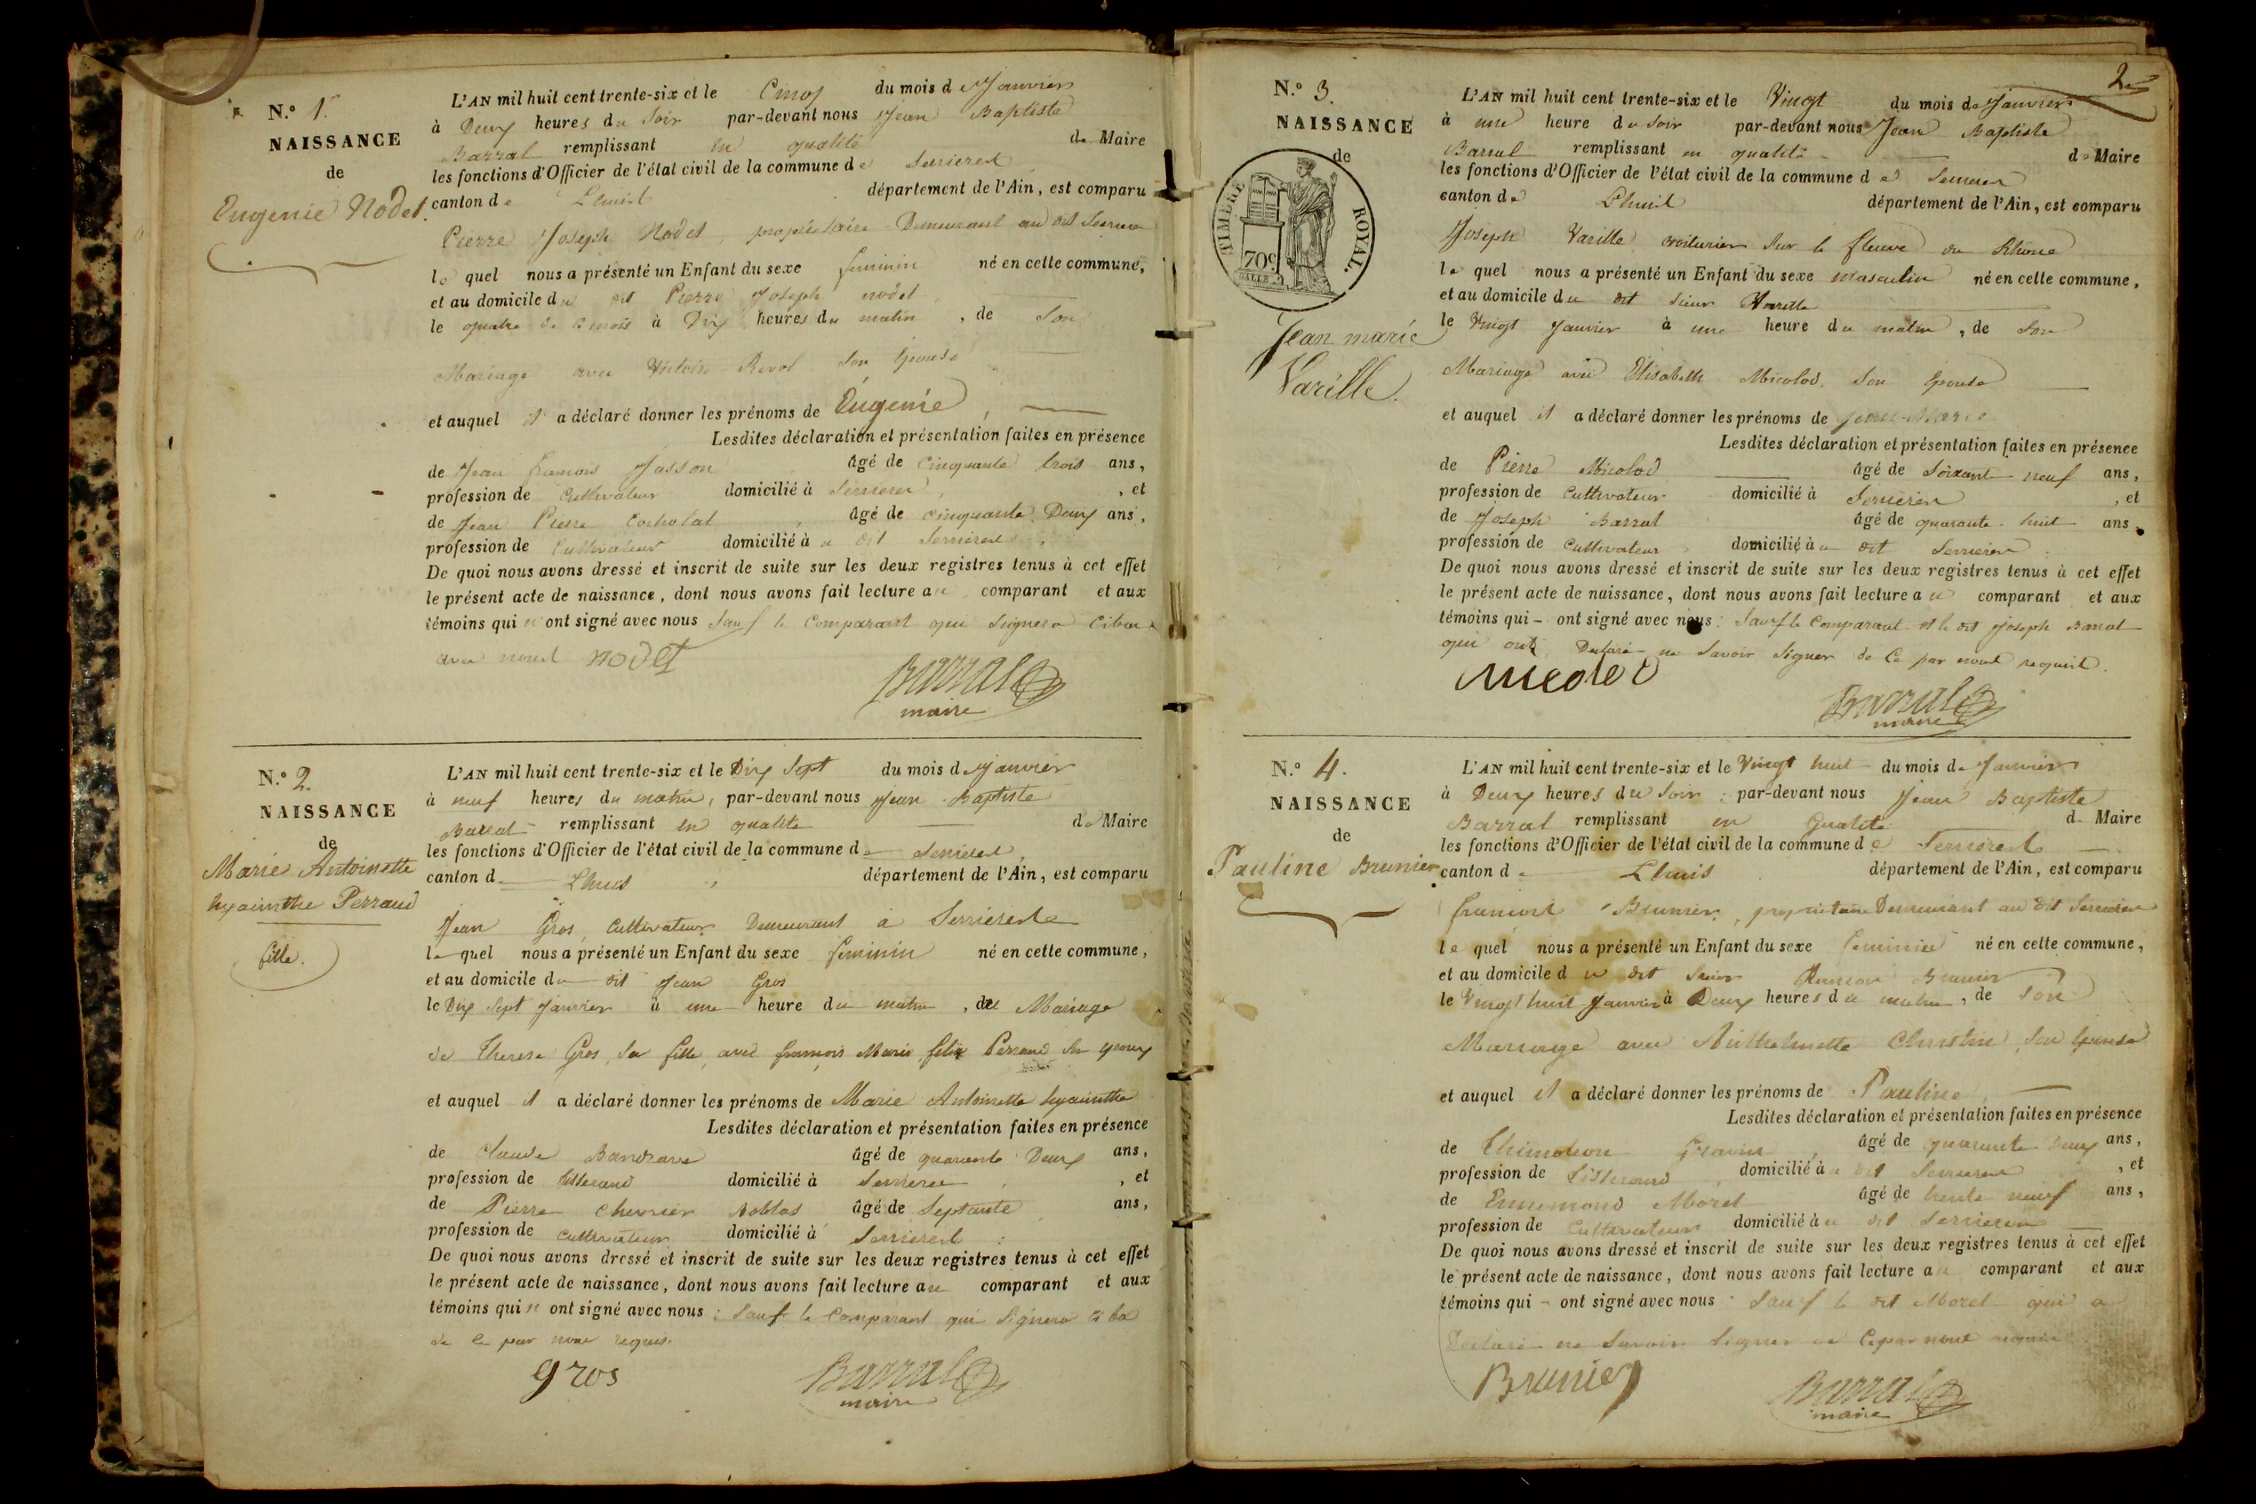 N.o 1.
NAISSANCE
de
Eugenie Nodet.
L'AN mil huit cent trente-six et le Cinq du mois de Janvier
à Deux heures du Soir par-devant nous Jean Baptiste
Barral remplissant en qualité de Maire
les fonctions d'Officier de l'état civil de la commune de Serrieres
canton de Lhuis département de l'Ain, est comparu
Pierre Joseph Nodet, propriétaire Demeurant au dit
le quel nous a présenté un Enfant du sexe feminin né en cette commune,
et au domicile du dit Pierre Joseph nodet
le quatre de ce mois à Dix heures du matin, de Son
Mariage avec Revol Son Epouse
et auquel il a déclaré donner les prénoms de Eugenie,
Lesdites déclaration et présentation faites en présence
de Jean francois Jasson âgé de cinquante trois ans,
profession de Cultivateur domicilié à Serrieres, et
de Jean Pierre Cocholat âgé de cinquante Deux ans,
profession de Cultivateur domicilié à u dit Serrieres
De quoi nous avons dressé et inscrit de suite sur les deux registres tenus à cet effet
le présent acte de naissance, dont nous avons fait lecture au comparant et aux
témoins qui n'ont signé avec nous Sauf le Comparant qui Signera
avec nous nodet
Barral
maire
N.o 2.
NAISSANCE
de
Marie Antoinette
hyacinthe Perraud
fille.
L'AN mil huit cent trente-six et le Dix Sept du mois de Janvier
à neuf heures du matin, par-devant nous Jean Baptiste
Barral remplissant en qualité de Maire
les fonctions d'Officier de l'état civil de la commune de Serrieres
canton de Lhuis département de l'Ain, est comparu
Jean Gros, Cultivateur Demeurant à Serrieres
le quel nous a présenté un Enfant du sexe feminin né en cette commune,
et au domicile du dit Jean Gros
le Dix Sept Janvier à une heure du matin, du Mariage
de Therese Gros, Sa fille, avec francois Marie felix Perraud Son Epoux
et auquel il a déclaré donner les prénoms de Marie Antoinette hyacinthe
Lesdites déclaration et présentation faites en présence
de Claude âgé de quarante Deux ans,
profession de tisserand domicilié à Serrieres, et
de Pierre Chevrier Noblas âgé de Septante ans,
profession de Cultivateur domicilié à Serrieres
De quoi nous avons dressé et inscrit de suite sur les deux registres tenus à cet effet
le présent acte de naissance, dont nous avons fait lecture au comparant et aux
témoins qui n'ont signé avec nous : Sauf le Comparant qui Signera
de Ce par nous requis.
gros
Barral
maire
2
N.o 3.
NAISSANCE
de
TIMBRE ROYAL.
70c
Jean marie
Varille.
L'AN mil huit cent trente-six et le Vingt du mois de Janvier
à une heure du soir par-devant nous Jean Baptiste
Barral remplissant en qualité de Maire
les fonctions d'Officier de l'état civil de la commune de Serrieres
canton de Lhuis département de l'Ain, est comparu
Joseph Varille voiturier Sur le fleuve du Rhone
le quel nous a présenté un Enfant du sexe masculin né en cette commune,
et au domicile du dit Sieur Varille
le Vingt Janvier à une heure du matin, de Son
Mariage avec Elisabeth Micolod, Son Epouse
et auquel il a déclaré donner les prénoms de Jean-Marie
Lesdites déclaration et présentation faites en présence
de Pierre Micolod âgé de Soixante neuf ans,
profession de Cultivateur domicilié à Serrieres, et
de Joseph Barral âgé de quarante huit ans,
profession de Cultivateur domicilié à u dit Serrieres
De quoi nous avons dressé et inscrit de suite sur les deux registres tenus à cet effet
le présent acte de naissance, dont nous avons fait lecture au comparant et aux
témoins qui - ont signé avec nous : Sauf le Comparant et le dit Joseph Barral
qui ont Déclaré ne Savoir Signer de Ce par nous requis.
Micolod
Barral
maire
N.o 4.
NAISSANCE
de
Pauline Brunier
L'AN mil huit cent trente-six et le Vingt huit du mois de Janvier
à Deux heures du Soir : par-devant nous Jean Baptiste
Barral remplissant en Qualité de Maire
les fonctions d'Officier de l'état civil de la commune de Serrieres
canton de Lhuis département de l'Ain, est comparu
francois Brunier, propriétaire Demeurant au dit Serrieres
le quel nous a présenté un Enfant du sexe feminin né en cette commune,
et au domicile du dit Sieur francois Brunier
le Vingt huit Janvier à Deux heures du matin, de Son
Mariage avec Anthelmette Christin, Son Epouse
et auquel il a déclaré donner les prénoms de Pauline
Lesdites déclaration et présentation faites en présence
de âgé de quarante Deux ans,
profession de Tisserand domicilié à u dit Serrieres, et
de Ennemond Morel âgé de trente neuf ans,
profession de Cultivateur domicilié à u dit Serrieres
De quoi nous avons dressé et inscrit de suite sur les deux registres tenus à cet effet
le présent acte de naissance, dont nous avons fait lecture au comparant et aux
témoins qui - ont signé avec nous Sauf le dit Morel qui a
Déclaré ne Savoir Signer de Ce par nous requis
Brunier
Barral
maire